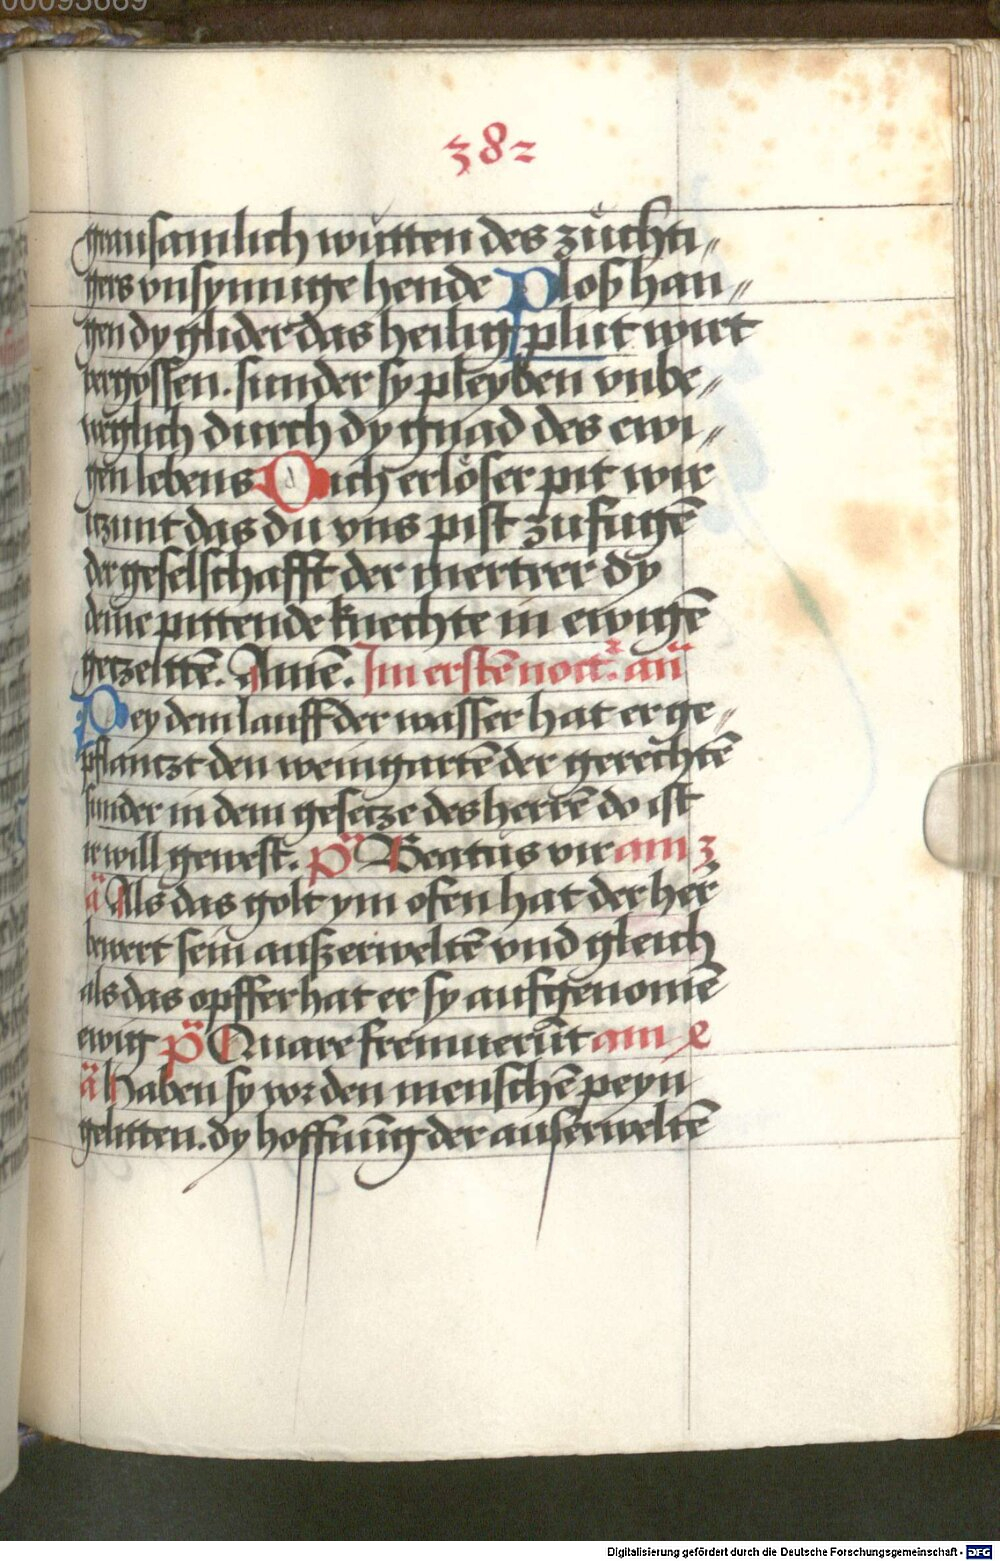 00093669
382
grausamlich wütten des züchti„
gers vnsynnige hende Ploß han„
gen dy glider das heilig plut wirt
vergossen. sunder sy pleyben vnbe„
weglich durch dy gnad des ewi„
gen lebens Dich erlöser pit wir
itzunt das du vns pist zu fugē
der geselschafft der mertrer dy
deine pittende knechte in ewigē
getzeltē. Amē. Im erstē noct͛. an̄
Pey dem lauff der wasser hat er ge„
pflantzt den weingartē der gerechtē
sunder in dem gesetze des herrē do ist
ir will gewest. pͣ Beatus vir am 3
a͞ Als das golt ym ofen hat der her̄
bewert sein außerweltē vnd gleich
als das opffer hat er sy aufgenomē
ewig pͣ Quare fremuerūt am
a͞ Haben sy vor den menschē peyn
gelitten. dy hoffnūg der auserweltē
Digitalisierung gefördert durch die Deutsche Forschungsgemeinschaft - DFG